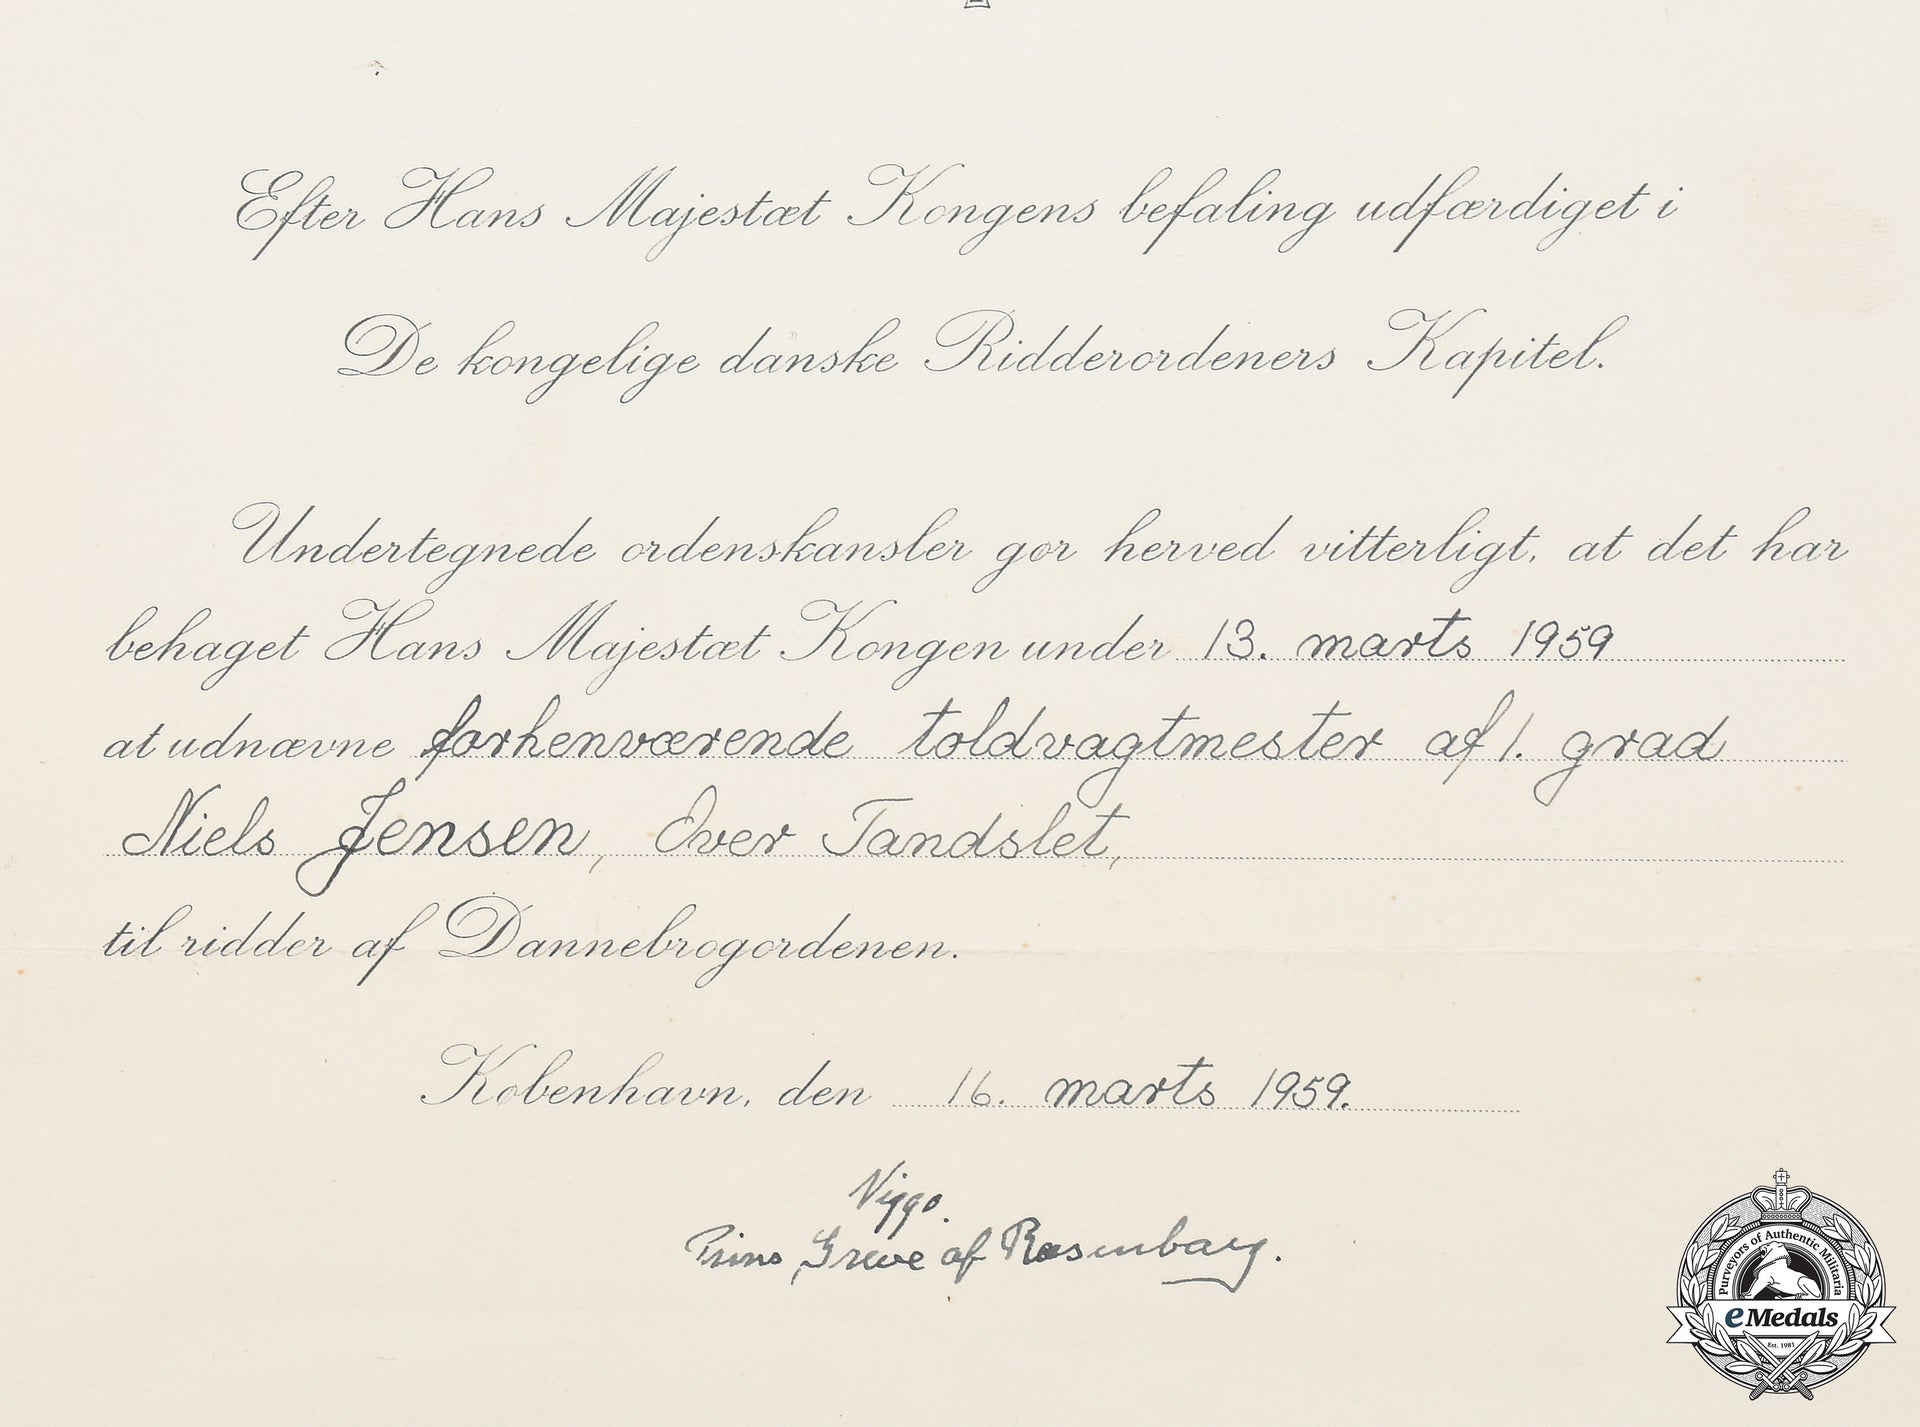 Efter Hans Majestæt Kongens befaling udfærdiget i
De kongelige danske Ridderordeners Kapitel.
Undertegnede ordenskansler gør herved vitterligt, at det har
behaget Hans Majestæt Kongen under 13. marts 1959
at udnævne forhenværende toldvagtmester af 1. grad
Niels Jensen, Over Tandslet,
til ridder af Dannebrogordenen.
København, den 16. marts 1959.
Viggo.
Prins, Greve af Rosenborg.
Purveyors of Authentic Militaria
eMedals
Est. 1981